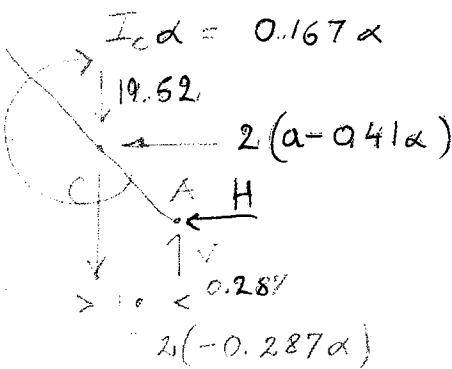 I_c α = 0.167 α
19.62
2(a-0.41α)
C
A
H
V
0.287
2(-0.287α)